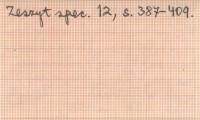 Zeszyt spec. 12, s. 387-409.